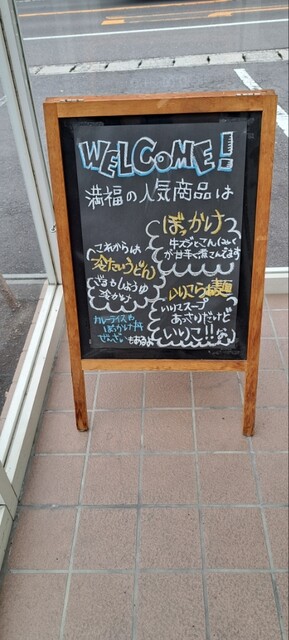 WELCOME!
満福の人気商品は
ぼっかけ
牛スジとこんにゃく
が甘辛く煮こんでます
これからは
冷たいうどん
ざる しょうゆ
冷かけ
カレーライスも
ぼっかけ丼
ぜんざい もあるよ
いりこらぁ麺
いりこスープ
あっさりだけど
いりこ!!